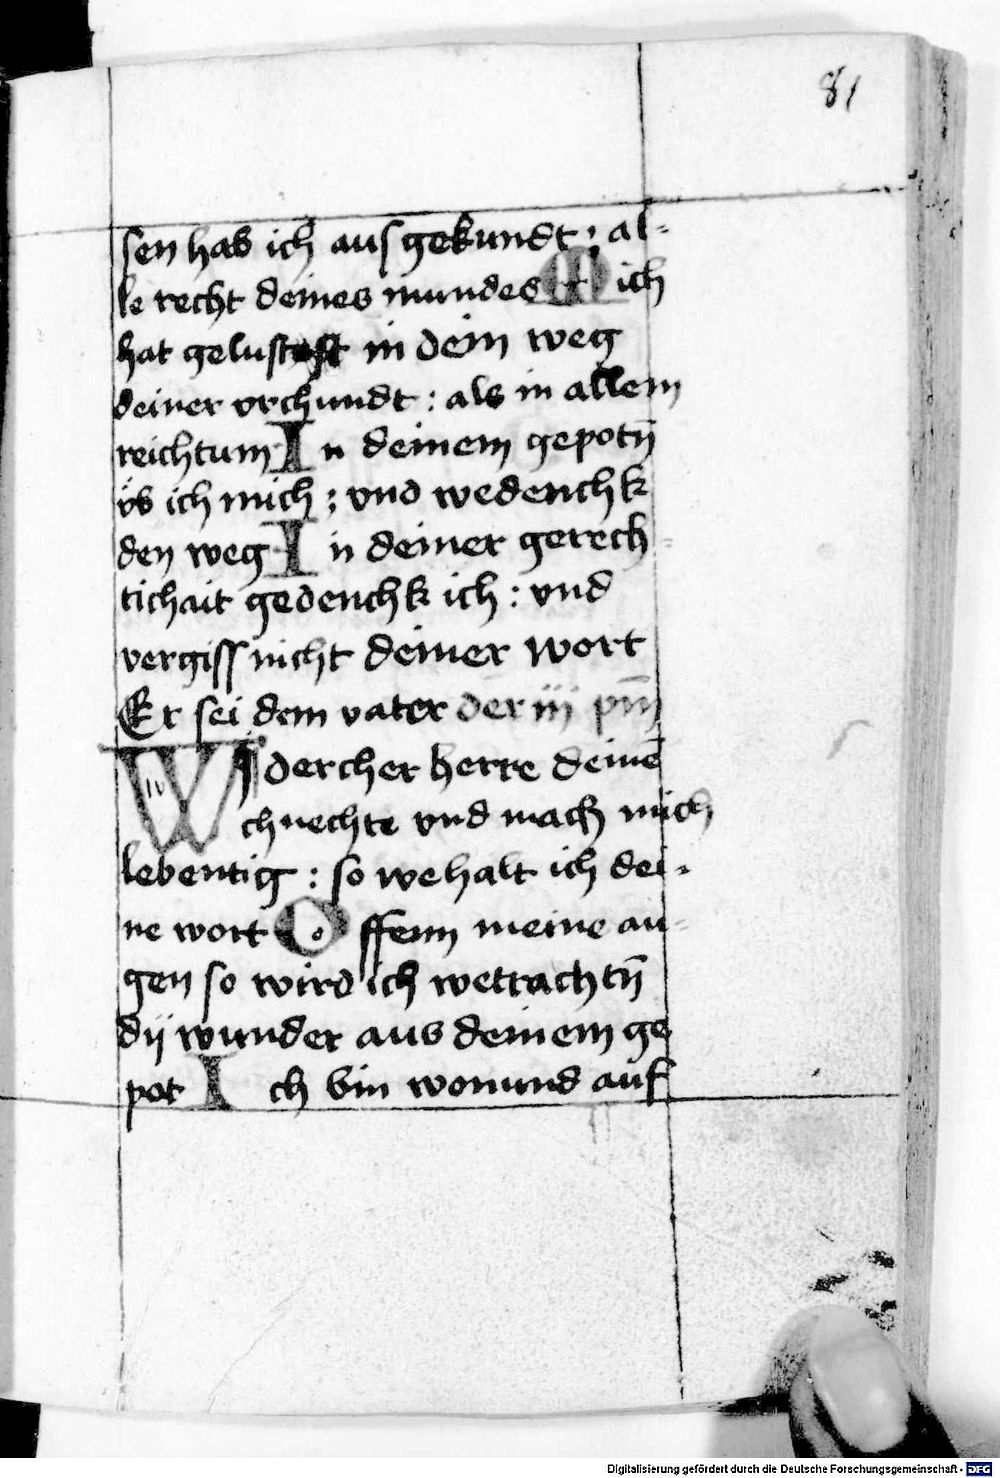 81
sen hab ich ausgekundt : al-
le recht deines mundes Mich
hat gelustost in dem weg
deiner vrchundt : als in allem
reichtum In deinem gepotn̄
üb ich mich : vnd wedenchk
den weg In deiner gerech-
tichait gedenchk ich : vnd
vergiss nicht deiner wort
Er sei dem vater der iij ps̄m
Widercher herre deinē
chnechte vnd mach mich
lebentig : so wehalt ich dei-
ne wort Offenn meine au-
gen so wird ich wetrachtn̄
dij wunder aus deinem ge
pot Ich bin wonund auf
Digitalisierung gefördert durch die Deutsche Forschungsgemeinschaft - DFG